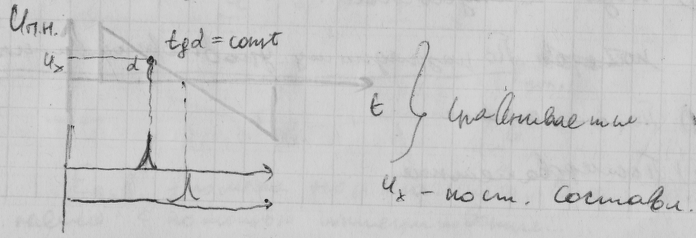 Uп.н.
tgα = const
Uₓ
α
t } сравниваемые
Uₓ – пост. составл.